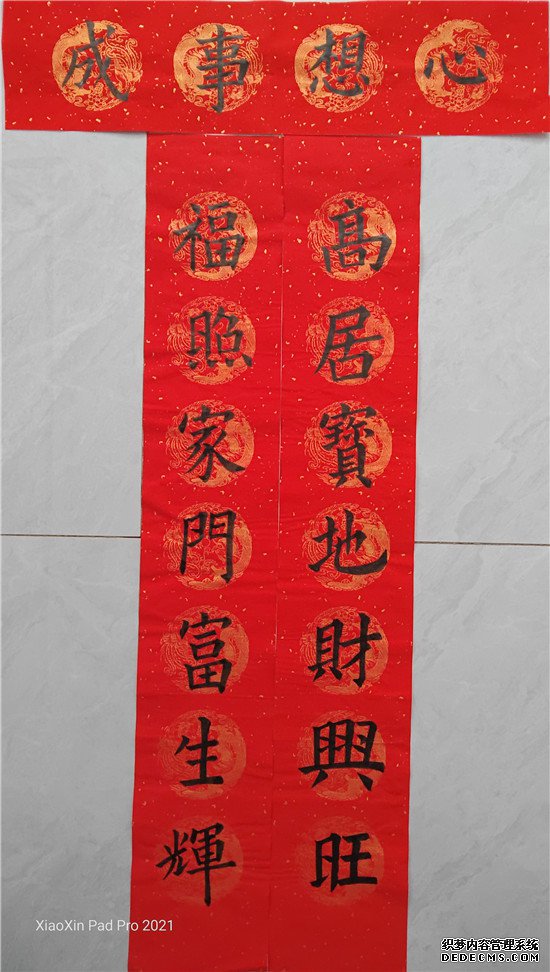 心想事成
高居寶地財興旺
福照家門富生輝
XiaoXin Pad Pro 2021
织梦内容管理系统
DEDECMS.COM